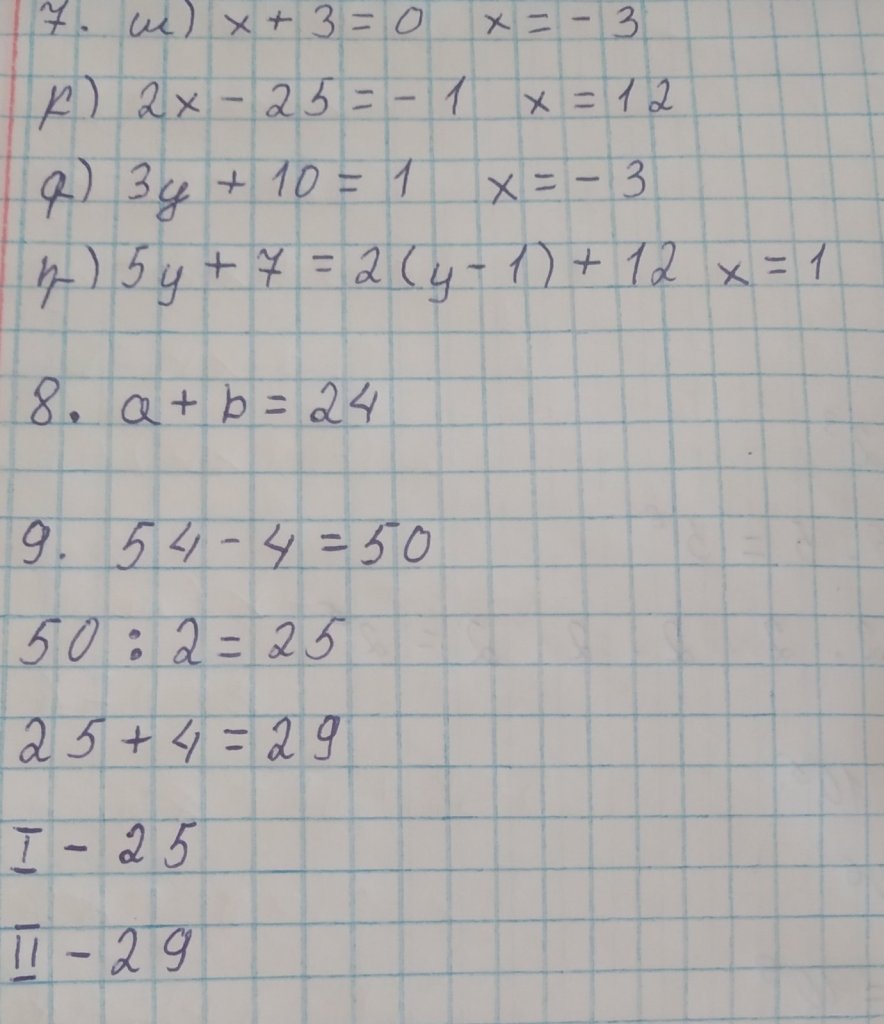 7. ա) x + 3 = 0 x = - 3
բ) 2x - 25 = - 1 x = 12
գ) 3y + 10 = 1 x = - 3
դ) 5y + 7 = 2(y - 1) + 12 x = 1
8. a + b = 24
9. 54 - 4 = 50
50 : 2 = 25
25 + 4 = 29
I - 25
II - 29